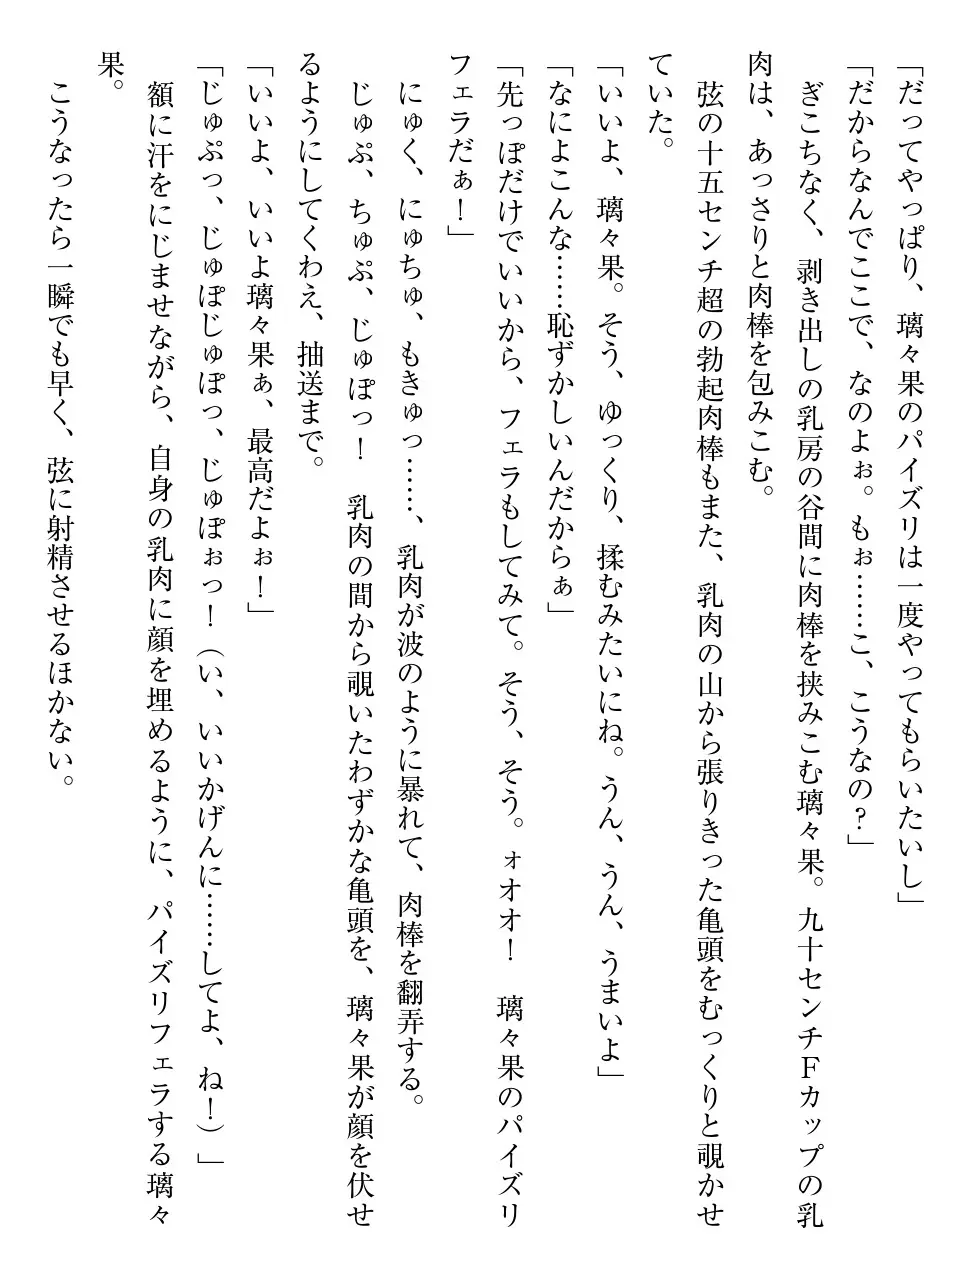 「だってやっぱり、璃々果のパイズリは一度やってもらいたいし」
「だからなんでここで、なのよぉ。もぉ……こ、こうなの?」
ぎこちなく、剥き出しの乳房の谷間に肉棒を挟みこむ璃々果。九十センチFカップの乳
肉は、あっさりと肉棒を包みこむ。
弦の十五センチ超の勃起肉棒もまた、乳肉の山から張りきった亀頭をむっくりと覗かせ
ていた。
「いいよ、璃々果。そう、ゆっくり、揉むみたいにね。うん、うん、うまいよ」
「なによこんな……恥ずかしいんだからぁ」
「先っぽだけでいいから、フェラもしてみて。そう、そう。ォオオ! 璃々果のパイズリ
フェラだぁ!」
にゅく、にゅちゅ、もきゅっ……、乳肉が波のように暴れて、肉棒を翻弄する。
じゅぷ、ちゅぷ、じゅぽっ! 乳肉の間から覗いたわずかな亀頭を、璃々果が顔を伏せ
るようにしてくわえ、抽送まで。
「いいよ、いいよ璃々果ぁ、最高だよぉ!」
「じゅぷっ、じゅぽじゅぽっ、じゅぽぉっ!(い、いいかげんに……してよ、ね!)」
額に汗をにじませながら、自身の乳肉に顔を埋めるように、パイズリフェラする璃々
果。
こうなったら一瞬でも早く、弦に射精させるほかない。